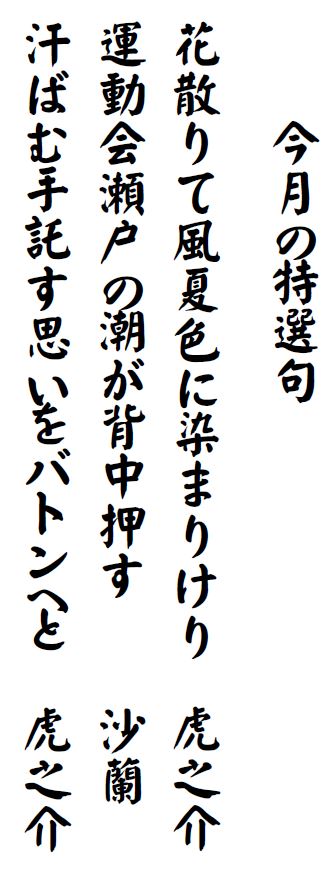 今月の特選句
花散りて風夏色に染まりけり 虎之介
運動会瀬戸の潮が背中押す 沙蘭
汗ばむ手託す思いをバトンへと 虎之介